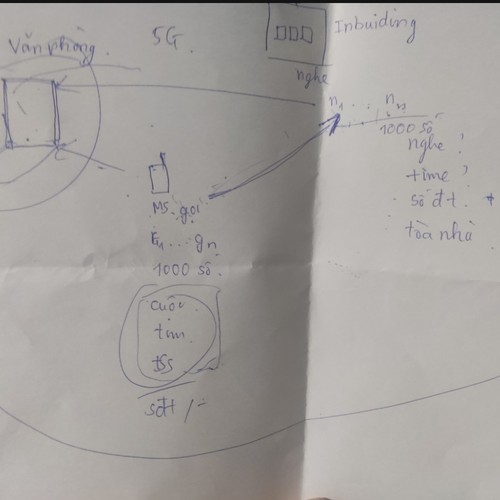 Văn phòng.
5G.
Inbuiding
nghe
n₁ . . . n₁₀
1000 số
nghe !
time ?
số đt.
tòa nhà
MS. gọi
g₁ ... gn
1000 số.
cuộc
tim
sđt /